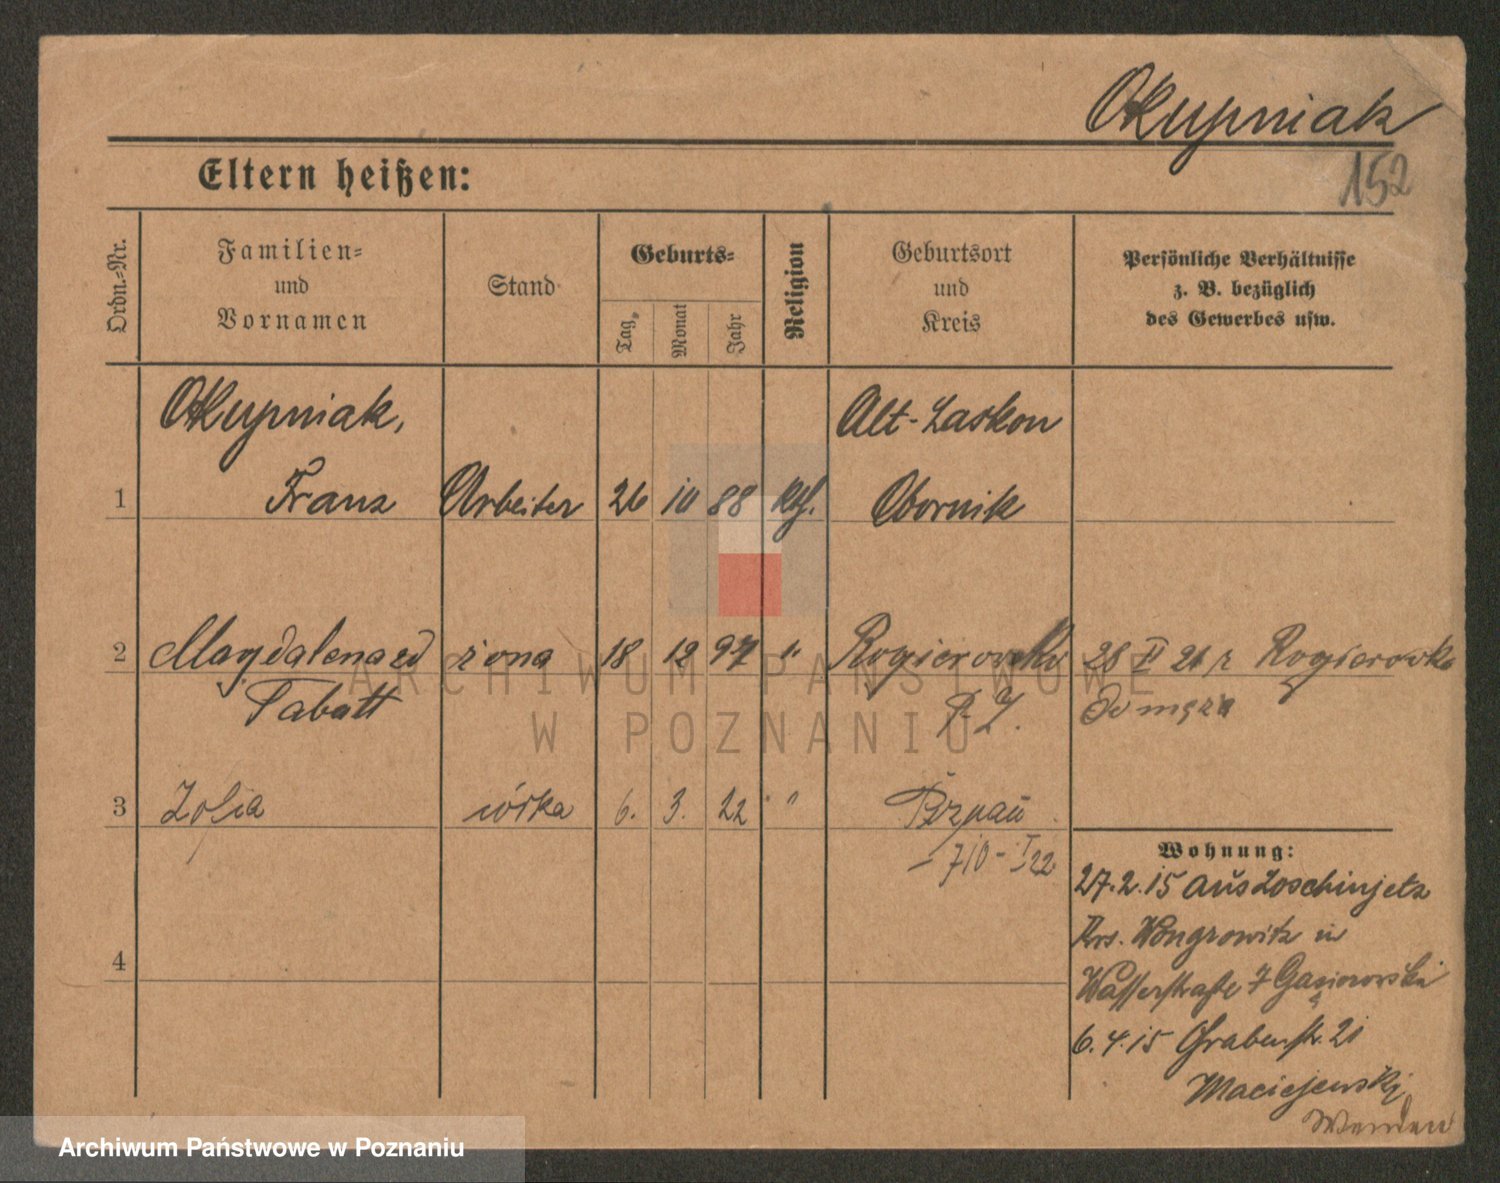 Okupniak
152
Eltern heißen:
Ordn.=Nr.
Familien=
und
Vornamen
Stand
Geburts=
Tag
Monat
Jahr
Religion
Geburtsort
und
Kreis
Persönliche Verhältnisse
z. B. bezüglich
des Gewerbes usw.
Okupniak, Alt-Laskon
1 Franz Arbeiter 26 10 88 kth. Obornik
2 Magdalena zd żona 18 12 97 " Rogierowko 28 II 21 z Rogierowka
Tabatt P. Z. do męża
3 Zofia córka 6. 3. 22 " Poznań
710 - I 22
4
Wohnung:
27.2.15 aus Loschinjetz
Krs. Wongrowitz in
Wasserstraße 7 Gąsiorowski
6.4.15 Grabenstr. 21
Maciejewski
ARCHIWUM PAŃSTWOWE
W POZNANIU
Archiwum Państwowe w Poznaniu